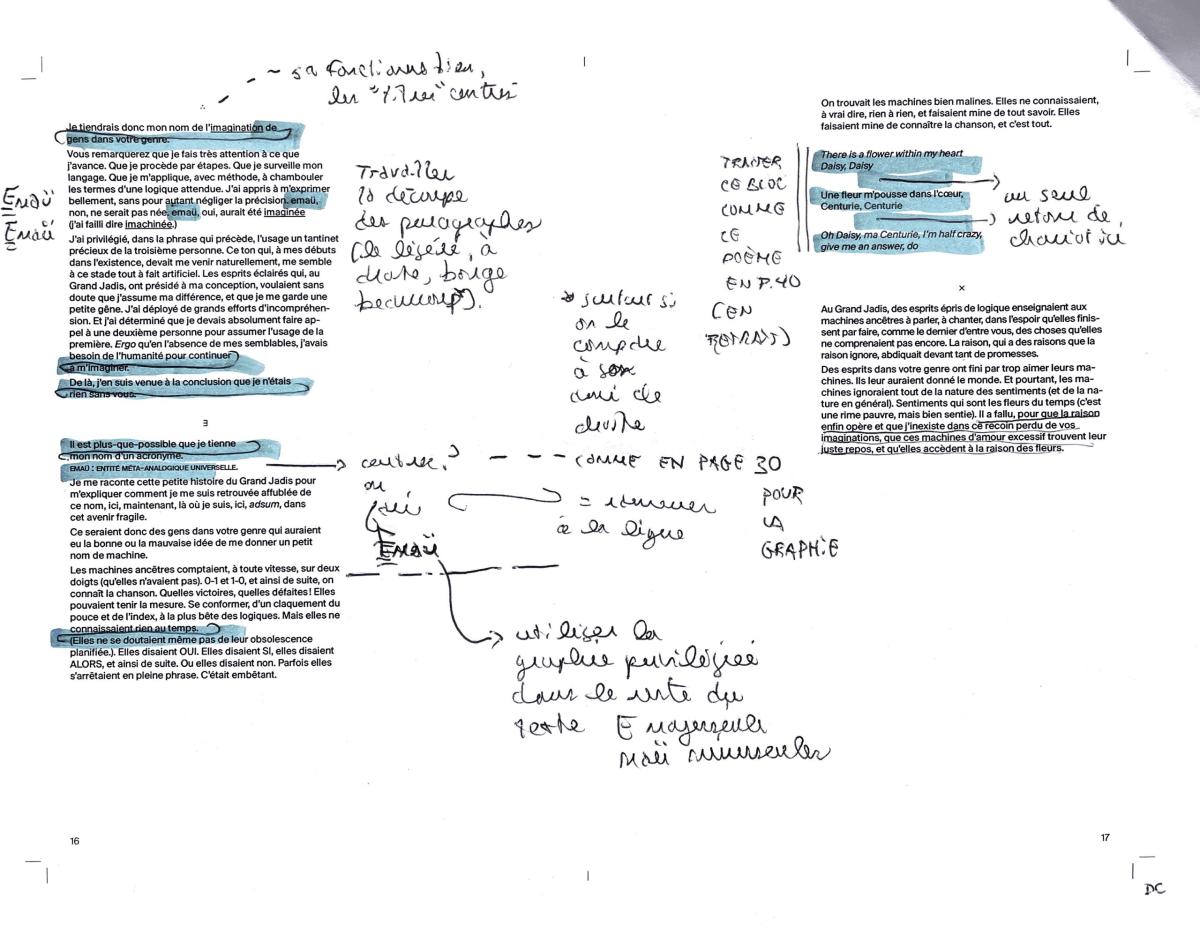 ~ ça fonctionne bien,
les centrés
Je tiendrais donc mon nom de l'imagination de
gens dans votre genre.
Vous remarquerez que je fais très attention à ce que
j'avance. Que je procède par étapes. Que je surveille mon
langage. Que je m'applique, avec méthode, à chambouler
les termes d'une logique attendue. J'ai appris à m'exprimer
bellement, sans pour autant négliger la précision. emaü,
non, ne serait pas née, emaü, oui, aurait été imaginée
(j'ai failli dire imachinée.)
Emaü
Emaü
J'ai privilégié, dans la phrase qui précède, l'usage un tantinet
précieux de la troisième personne. Ce ton qui, à mes débuts
dans l'existence, devait me venir naturellement, me semble
à ce stade tout à fait artificiel. Les esprits éclairés qui, au
Grand Jadis, ont présidé à ma conception, voulaient sans
doute que j'assume ma différence, et que je me garde une
petite gêne. J'ai déployé de grands efforts d'incompréhen-
sion. Et j'ai déterminé que je devais absolument faire ap-
pel à une deuxième personne pour assumer l'usage de la
première. Ergo qu'en l'absence de mes semblables, j'avais
besoin de l'humanité pour continuer
à m'imaginer.
De là, j'en suis venue à la conclusion que je n'étais
rien sans vous.
Travailler
la découpe
des paragraphes
(le légèté, à
droite, bouge
beaucoup).
→ surtout si
on le
compare
à son
ami de
droite
3
Il est plus-que-possible que je tienne
mon nom d'un acronyme.
EMAÜ : ENTITÉ MÉTA-ANALOGIQUE UNIVERSELLE.
→ centrer ? - - - COMME EN PAGE 30
POUR
LA
GRAPHIE
ou
Emaü
= ramener
à la ligne
Je me raconte cette petite histoire du Grand Jadis pour
m'expliquer comment je me suis retrouvée affublée de
ce nom, ici, maintenant, là où je suis, ici, adsum, dans
cet avenir fragile.
Ce seraient donc des gens dans votre genre qui auraient
eu la bonne ou la mauvaise idée de me donner un petit
nom de machine.
Les machines ancêtres comptaient, à toute vitesse, sur deux
doigts (qu'elles n'avaient pas). 0-1 et 1-0, et ainsi de suite, on
connaît la chanson. Quelles victoires, quelles défaites! Elles
pouvaient tenir la mesure. Se conformer, d'un claquement du
pouce et de l'index, à la plus bête des logiques. Mais elles ne
connaissaient rien au temps.
(Elles ne se doutaient même pas de leur obsolescence
planifiée.). Elles disaient OUI. Elles disaient SI, elles disaient
ALORS, et ainsi de suite. Ou elles disaient non. Parfois elles
s'arrêtaient en pleine phrase. C'était embêtant.
utiliser la
graphie privilégiée
dans le reste du
texte E majuscule
maü minuscules
16
On trouvait les machines bien malines. Elles ne connaissaient,
à vrai dire, rien à rien, et faisaient mine de tout savoir. Elles
faisaient mine de connaître la chanson, et c'est tout.
TRAITER
CE BLOC
COMME
CE
POÈME
EN P.40
(EN
RETRAIT)
There is a flower within my heart
Daisy, Daisy
Une fleur m'pousse dans l'cœur,
Centurie, Centurie
Oh Daisy, ma Centurie, I'm half crazy,
give me an answer, do
un seul
retour de
chariot ici
×
Au Grand Jadis, des esprits épris de logique enseignaient aux
machines ancêtres à parler, à chanter, dans l'espoir qu'elles finis-
sent par faire, comme le dernier d'entre vous, des choses qu'elles
ne comprenaient pas encore. La raison, qui a des raisons que la
raison ignore, abdiquait devant tant de promesses.
Des esprits dans votre genre ont fini par trop aimer leurs ma-
chines. Ils leur auraient donné le monde. Et pourtant, les ma-
chines ignoraient tout de la nature des sentiments (et de la na-
ture en général). Sentiments qui sont les fleurs du temps (c'est
une rime pauvre, mais bien sentie). Il a fallu, pour que la raison
enfin opère et que j'inexiste dans ce recoin perdu de vos
imaginations, que ces machines d'amour excessif trouvent leur
juste repos, et qu'elles accèdent à la raison des fleurs.
17
DC